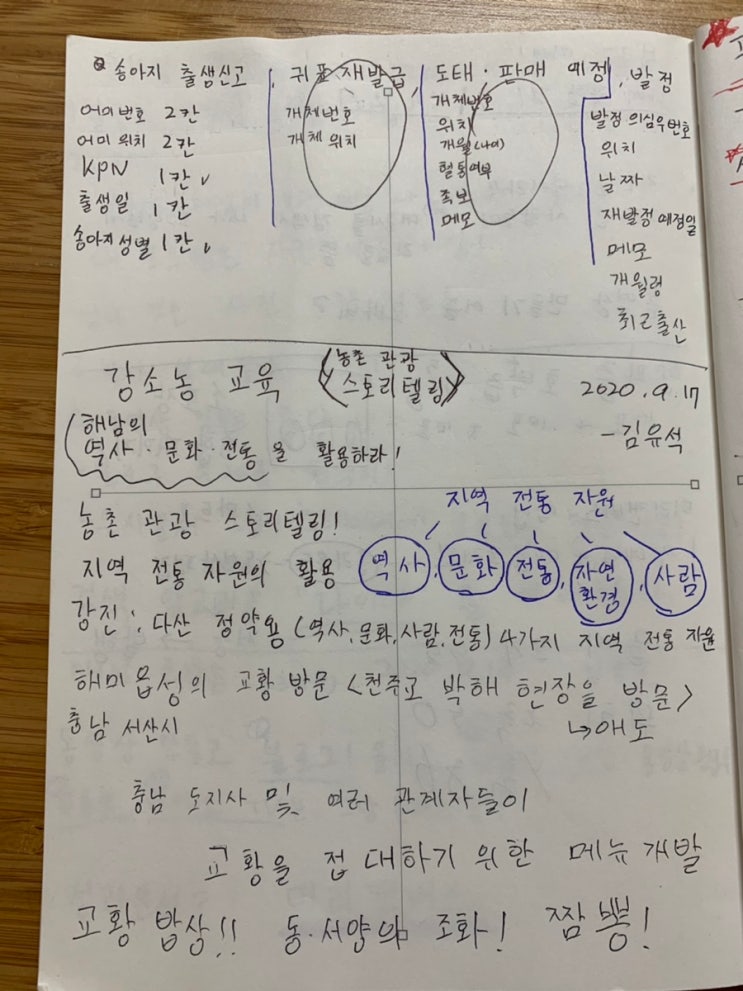 송아지 출생신고, 귀표 재발급, 도태·판매 예정, 발정
어미번호 2칸
어미 위치 2칸
KPN 1칸
출생일 1칸
송아지성별 1칸
개체번호
개체 위치
개체번호
위치
개월(나이)
혈통여부
족보
메모
발정 의심우번호
위치
날짜
재발정 예정일
메모
개월령
최근출산
강소농 교육 <농촌 관광
스토리텔링>
2020.9.17
-김유석
해남의
역사·문화·전통을 활용하라!
농촌 관광 스토리텔링!
지역 전통 자원의 활용
지역 전통 자원
역사, 문화, 전통, 자연환경, 사람
강진:, 다산 정약용 (역사,문화,사람,전통) 4가지 지역 전통 자원
해미읍성의 교황 방문 <천주교 박해 현장을 방문>
↳애도
충남 서산시
충남 도지사 및 여러 관계자들이
교황을 접대하기 위한 메뉴개발
교황 밥상!! 동·서양의 조화! 짬뽕!